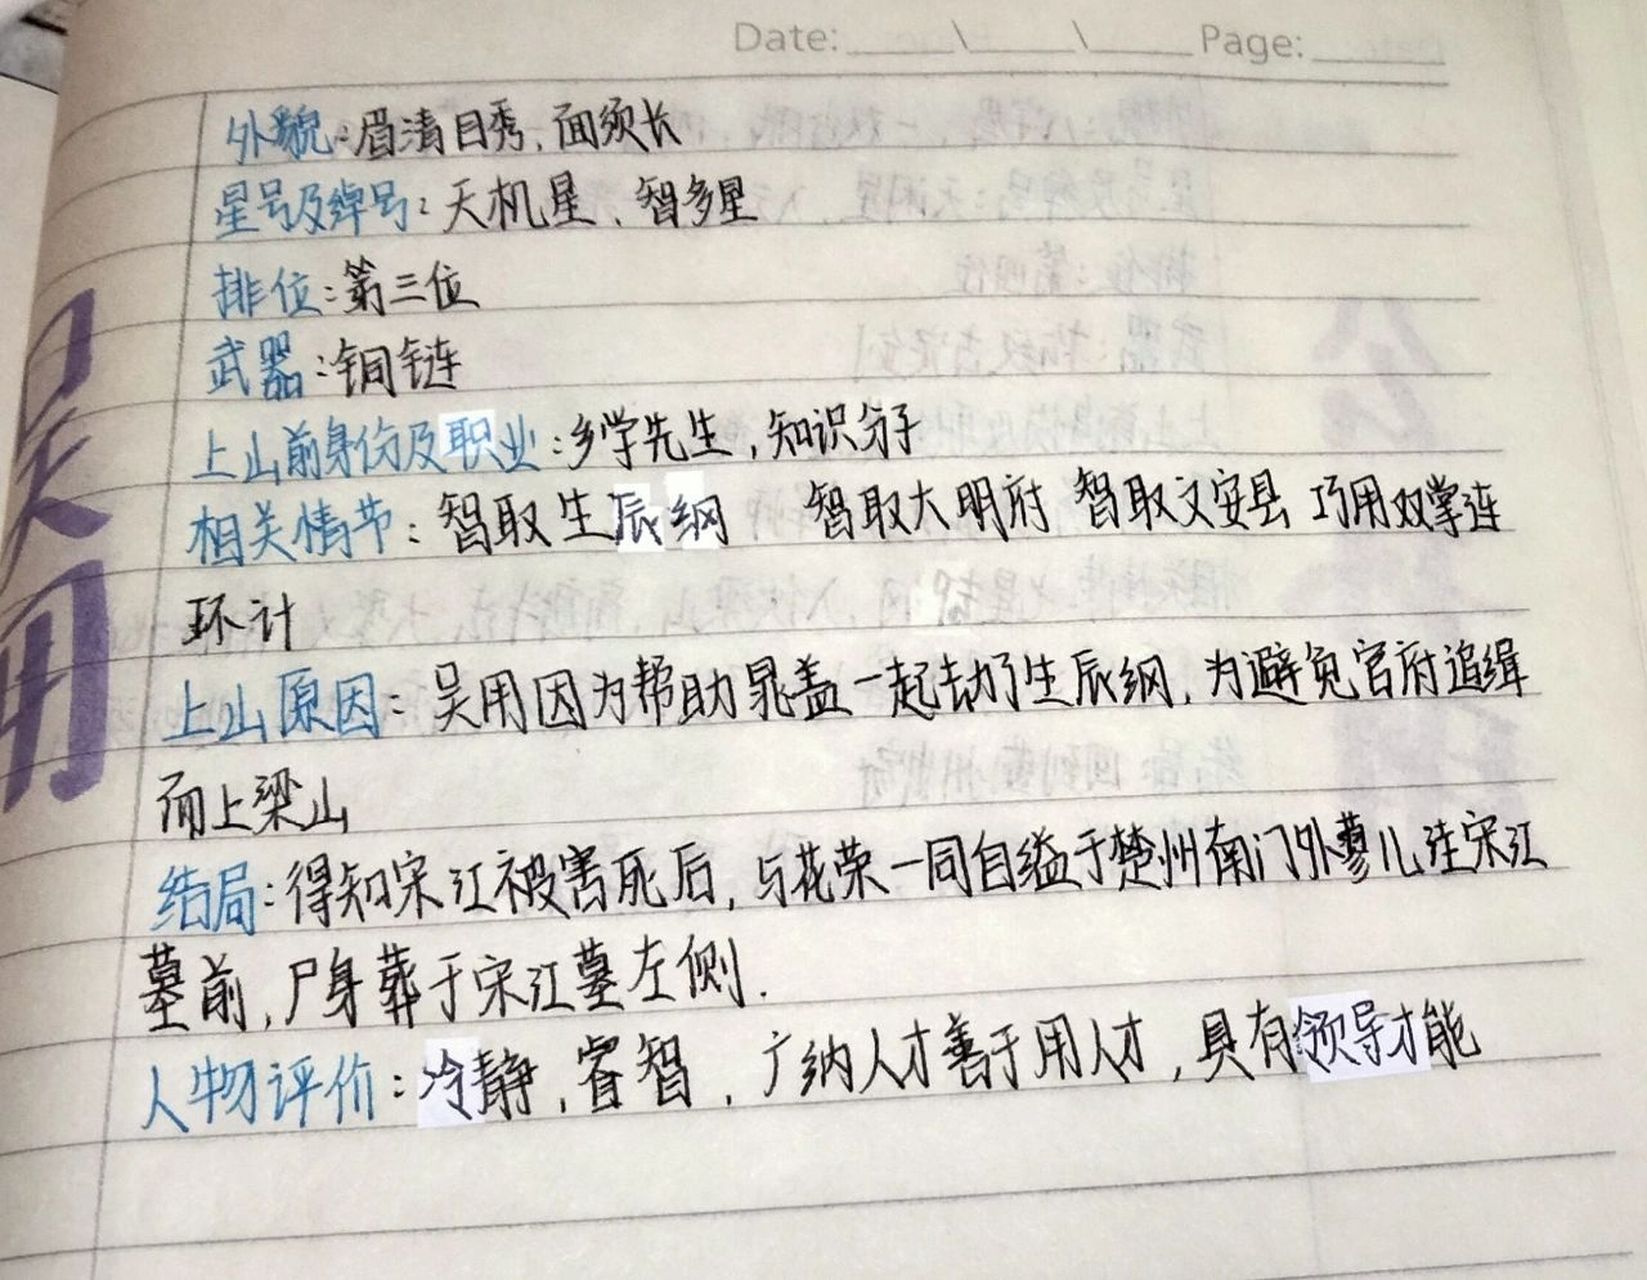 Date: \ \ Page:
吴用
外貌:眉清目秀,面须长
星号及绰号:天机星、智多星
排位:第三位
武器:铜链
上山前身份及职业:乡学先生,知识分子
相关情节:智取生辰纲 智取大明府 智取文安县 巧用双掌连
环计
上山原因:吴用因为帮助晁盖一起劫了生辰纲,为避免官府追缉
而上梁山
结局:得知宋江被害死后,与花荣一同自缢于楚州南门外蓼儿洼宋江
墓前,尸身葬于宋江墓左侧.
人物评价:冷静,睿智,广纳人才善于用人才,具有领导才能